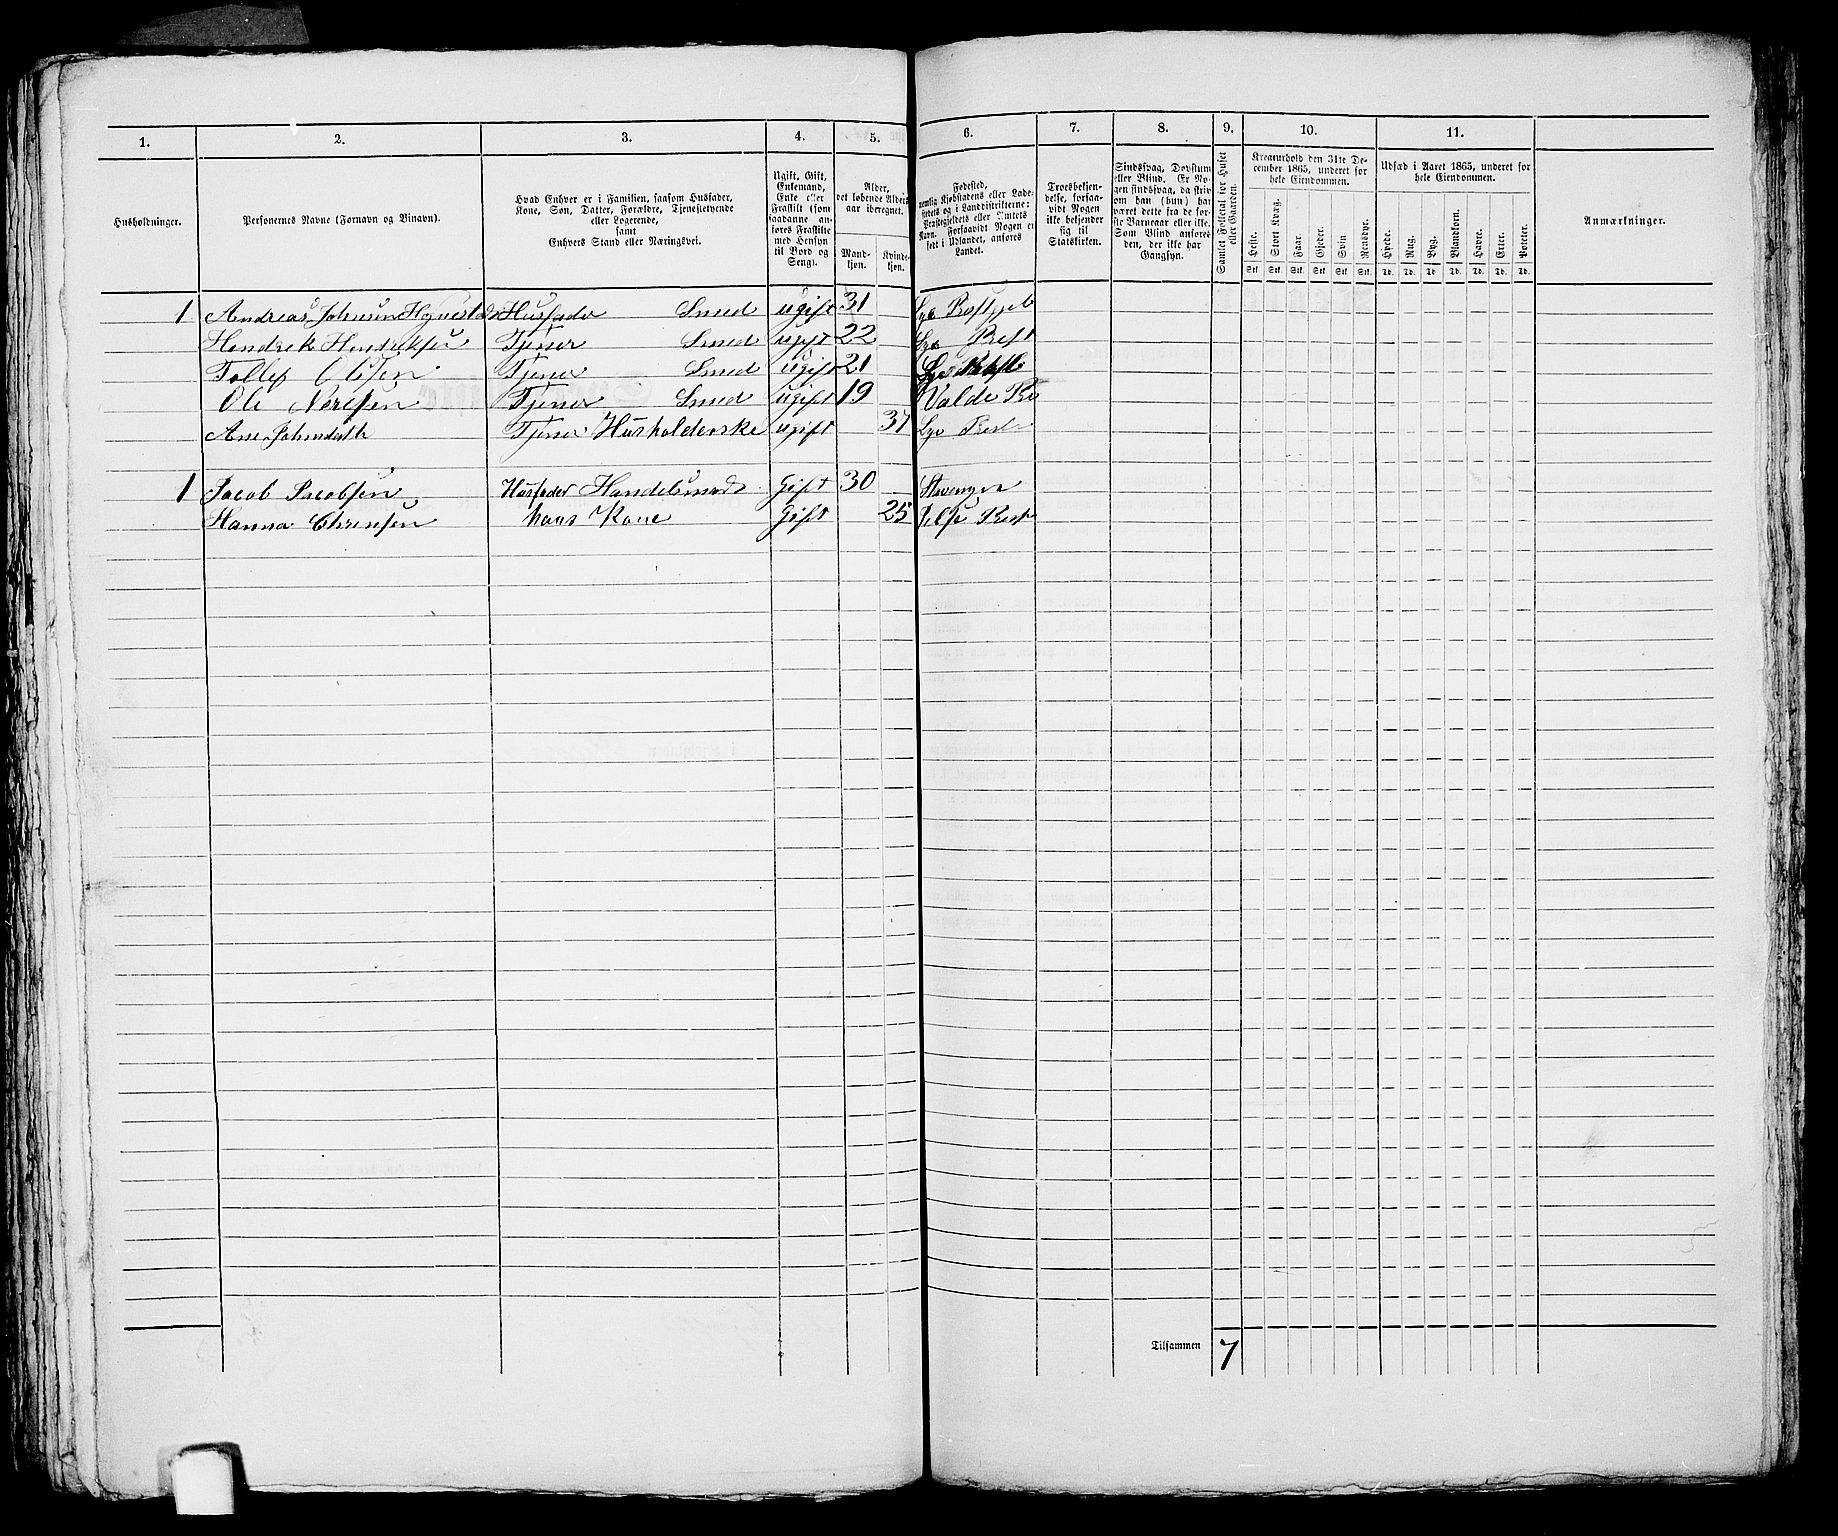 1. 2. 3. 4. 5. 6. 7. 8. 9. 10. 11.
Husholdninger.
Personernes Navne (Fornavn og Binavn).
Hvad Enhver er i Familien, saasom Husfader,
Kone, Søn, Datter, Forældre, Tjenestetyende
eller Logerende,
samt
Enhvers Stand eller Næringsvei.
Ugift, Gift,
Enkemand,
Enke eller
Fraskilt (som
saadanne an-
føres Fraskilte
med Hensyn
til Bord og
Seng).
Alder,
det løbende Alders-
aar iberegnet.
Mand-
kjøn.
Kvinde-
kjøn.
Fødested,
nemlig Kjøbstadens eller Lade-
stedets og i Landdistrikterne:
Præstegjeldets eller Amtets
Navn. Forsaavidt Nogen er
født i Udlandet, anføres
Landet.
Troesbekjen-
delse, forsaa-
vidt Nogen
ikke bekjender
sig til
Statskirken.
Sindssvag, Døvstum
eller Blind. Er No-
gen sindssvag, da skri-
ves om han (hun) har
været dette fra de før-
ste Barneaar eller ikke.
Som Blind anføres
den, der ikke har
Gangsyn.
Samlet Folketal for Huset
eller Gaarden.
Kreaturhold den 31te De-
cember 1865, underet for
hele Eiendommen.
Heste. Stort Kvæg. Faar. Gjeder. Svin. Rensdyr.
Stk. Stk. Stk. Stk. Stk. Stk.
Udsæd i Aaret 1865, underet for
hele Eiendommen.
Hvede. Rug. Byg. Blandkorn. Havre. Erter. Poteter.
Td. Td. Td. Td. Td. Td. Td.
Anmærkninger.
1 Andreas Johnsen Husfader Smed ugift 31
Hendrek Hendreksen Tjener Smed ugift 22
Tollef Olsen Tjener Smed ugift 21
Ole Tjener Smed ugift 19
Ane Tjener Husholderske ugift 37
1 Jacob Jacobsen Husfader Gift 30 Stavenger
Hanna hans Kone Gift 25
Tilsammen 7